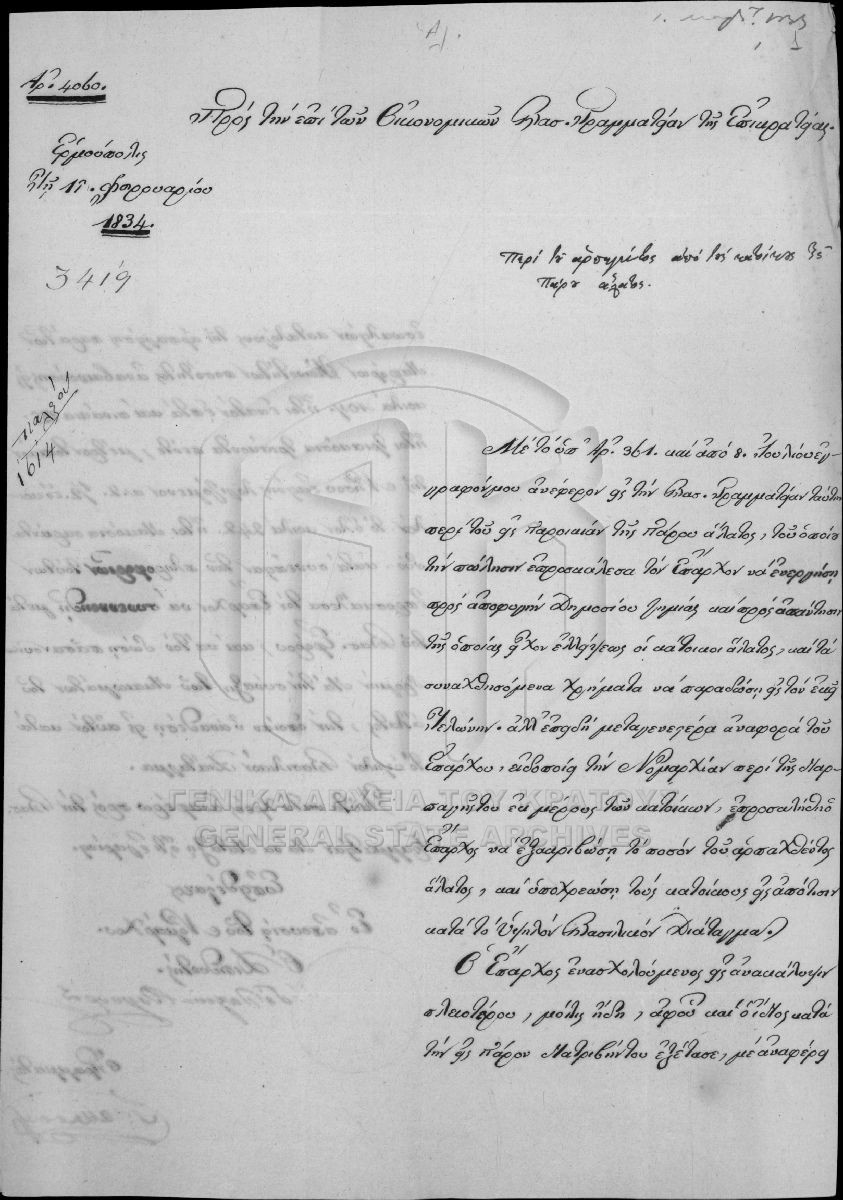 Α).
Αρ. 4060.
Πρὸς τὴν ἐπὶ τῶν Οἰκονομικῶν Βασ. Γραμματείαν τῆς Ἐπικρατείας.
Ἑρμούπολις
Τῇ 17. Φεβρουαρίου
1834.
Περὶ τοῦ ἁρπαγέντος ἀπὸ τοὺς κατοίκους τῆς
Πάρου ἅλατος.
3419
1614
Μὲ τὸ ὑπ' Ἀρ. 361. καὶ ἀπὸ 8. Ἰουλίου ἔγ-
γραφόν μου ἀνέφερον εἰς τὴν Βασ. Γραμματείαν ταύτην
περὶ τοῦ εἰς Παροικίαν τῆς Πάρου ἅλατος, τοῦ ὁποίου
τὴν πώλησιν ἐπροσκάλεσα τὸν Ἔπαρχον νὰ ἐνεργήσῃ
πρὸς ἀποφυγὴν δημοσίου ζημίας καὶ πρὸς ἀπάντησιν
τῆς ὁποίας εἶχον ἐλλείψεως οἱ κάτοικοι ἅλατος, καὶ τὰ
συναχθησόμενα χρήματα νὰ παραδώσῃ εἰς τὸν ἐκεῖ
Τελώνην. ἀλλ' ἐπειδὴ μεταγενεστέρα ἀναφορὰ τοῦ
Ἐπάρχου, εἰδοποιεῖ τὴν Νομαρχίαν περὶ τῆς διαρ-
παγῆς του ἐκ μέρους τῶν κατοίκων, ἐπροσκλήθη ὁ
Ἔπαρχος νὰ ἐξακριβώσῃ τὸ ποσὸν τοῦ ἁρπαχθέντος
ἅλατος, καὶ ὑποχρεώσῃ τοὺς κατοίκους εἰς ἀπότισιν
κατὰ τὸ Ὑψηλὸν Βασιλικὸν Διάταγμα.
Ὁ Ἔπαρχος ἐνασχολούμενος εἰς ἀνακάλυψιν
πλειοτέρου, μόλις ἤδη, ἀφοῦ καὶ ὁ ἴδιος κατὰ
τὴν εἰς Πάρον διατριβήν του ἐξέτασε, μὲ ἀναφέρει
ΓΕΝΙΚΑ ΑΡΧΕΙΑ ΤΟΥ ΚΡΑΤΟΥΣ
GENERAL STATE ARCHIVES